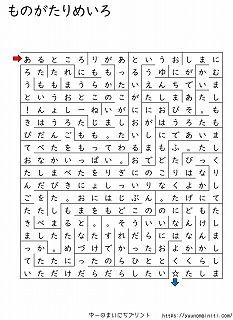 ものがたりめいろ
あるところりがあというおしまに
ろたたれにももっるうゆにがかむ
うももまうらかたいえんちでいま
というおとこのこがたしまあたし
！んょしーねいがににおびそ。も
きはうろたじましおがはうろたと
びだんごもも。たいしにであいま
てべたをもってわるまもふ。たし
おなかいっぱい。おでどたびっく
しまたべたをりぎにのこりはなり
んだびきにょしっいりなくよかし
ごをた。おにはじぶん。たげにて
たたしもまをもどこののにどもた
をべまると。。そういいなんけし
ましたなたすれだらにはなんはま
っか。めづけでかったおよかかた
たたにっのらひとととくらし
いただけだらだしたい☆たしま
ゆーのまいにちプリント https://yuunomainiti.com/